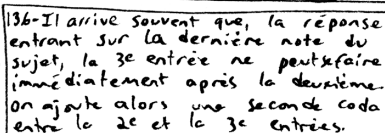 136-Il arrive souvent que, la réponse
entrant sur la dernière note du
sujet, la 3e entrée ne peut se faire
immédiatement après la deuxième.
On ajoute alors une seconde coda
entre la 2e et la 3e entrées.